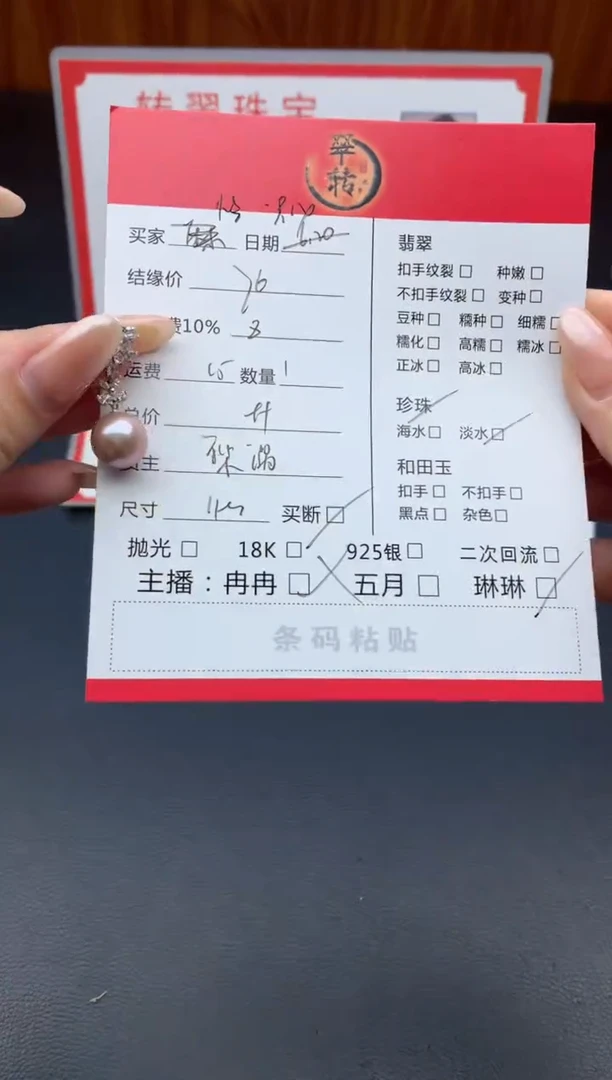 转翠珠宝
翠转
买家 日期 6.20
结缘价 76
费10% 8
运费 15 数量 1
总价
货主
尺寸 买断□
抛光□ 18K□ 925银□ 二次回流□
主播：冉冉□ 五月□ 琳琳□
条码粘贴
翡翠
扣手纹裂□ 种嫩□
不扣手纹裂□ 变种□
豆种□ 糯种□ 细糯□
糯化□ 高糯□ 糯冰□
正冰□ 高冰□
珍珠
海水□ 淡水□
和田玉
扣手□ 不扣手□
黑点□ 杂色□